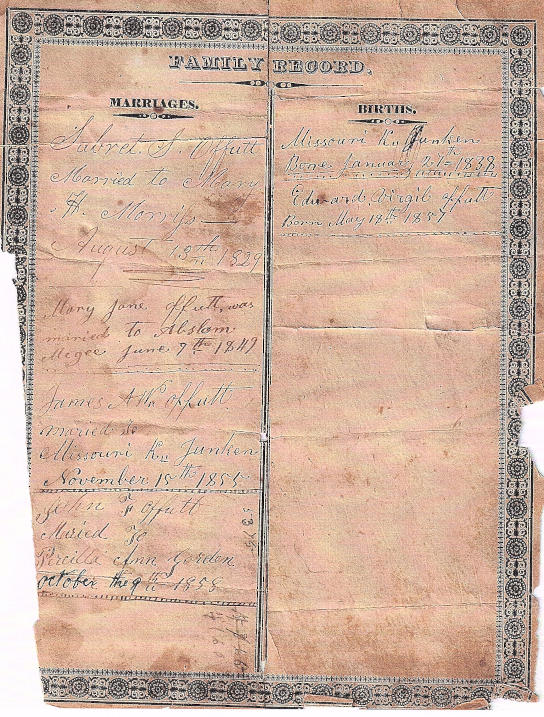 FAMILY RECORD.
MARRIAGES.
Sabret S. Offutt
Married to Mary
H. Morrys
August 13th 1829
Mary Jane Offutt, was
married to Abslam
Megee June 7th 1849
James A Wm Offutt
Maried to
Missouri K. Junken
November 15th 1855
John F Offutt
Maried To
Percilla Ann Gorden
October the 9th 1858
BIRTHS.
Missouri K. Junken
Borne January 21th 1838
Edward Virgil Offutt
Born May 18th 1857